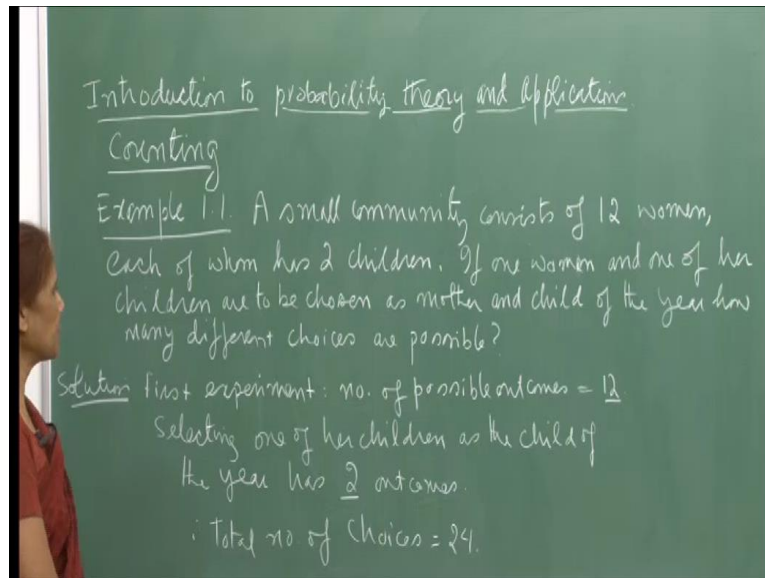 Introduction to probability theory and Application.
Counting
Example 1.1. A small community consists of 12 women,
each of whom has 2 children. If one women and one of her
children are to be chosen as mother and child of the year how
many different choices are possible?
Solution First experiment: no. of possible outcomes = 12
Selecting one of her children as the child of
the year has 2 outcomes.
∴ Total no. of Choices = 24.